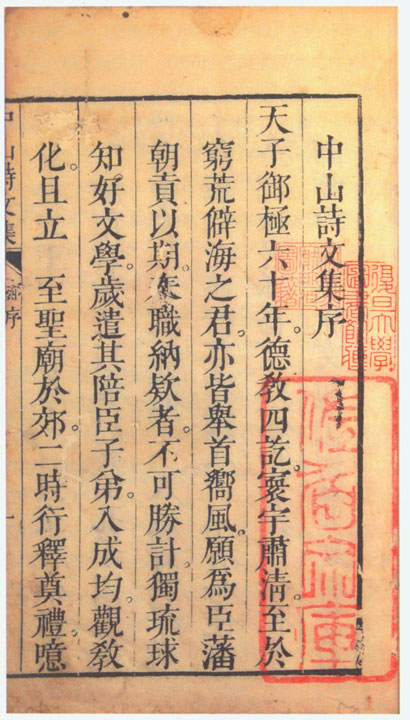 中山詩文集序
天子御極六十年。德敎四訖。寰宇肅淸。至於
窮荒僻海之君。亦皆舉首嚮風。願爲臣藩
朝貢以期。來職納欵者。不可勝計。獨琉球
知好文學。歲遣其陪臣子弟。入成均觀敎
化。且立　至聖廟於郊。二時行釋奠禮。噫
中山詩文集
序
一
復旦大學
圖書館藏